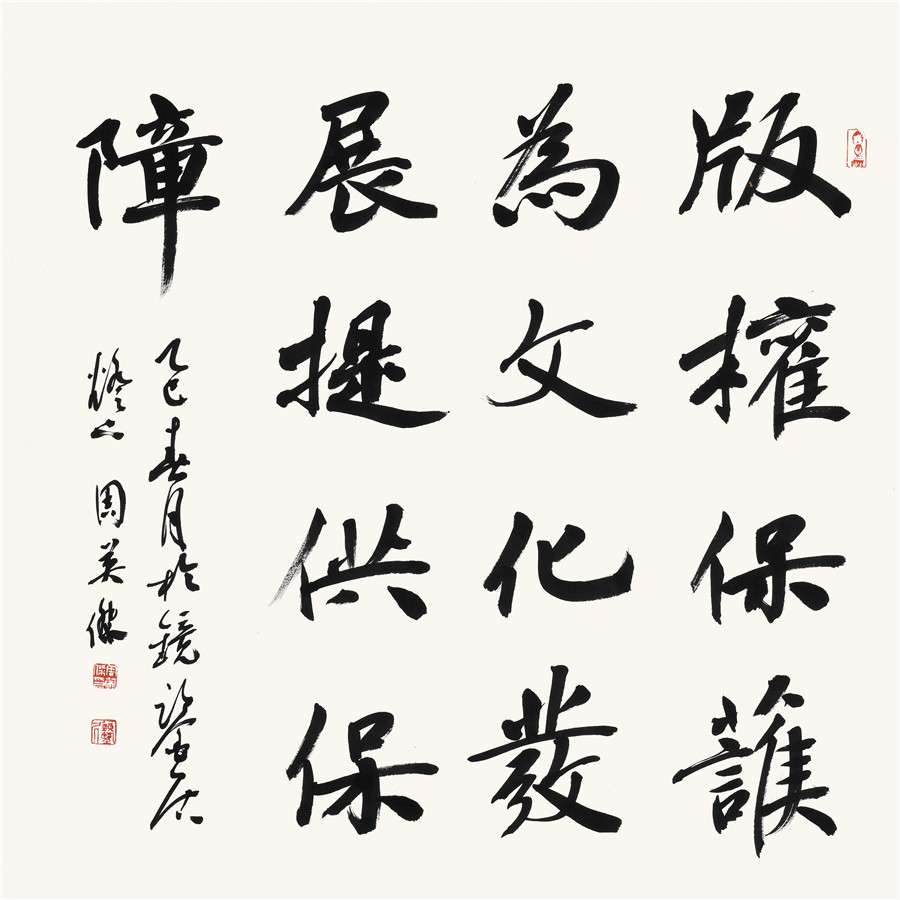 版權保護
為文化發
展提供保
障
乙巳春月於鏡
燈下 周英傑